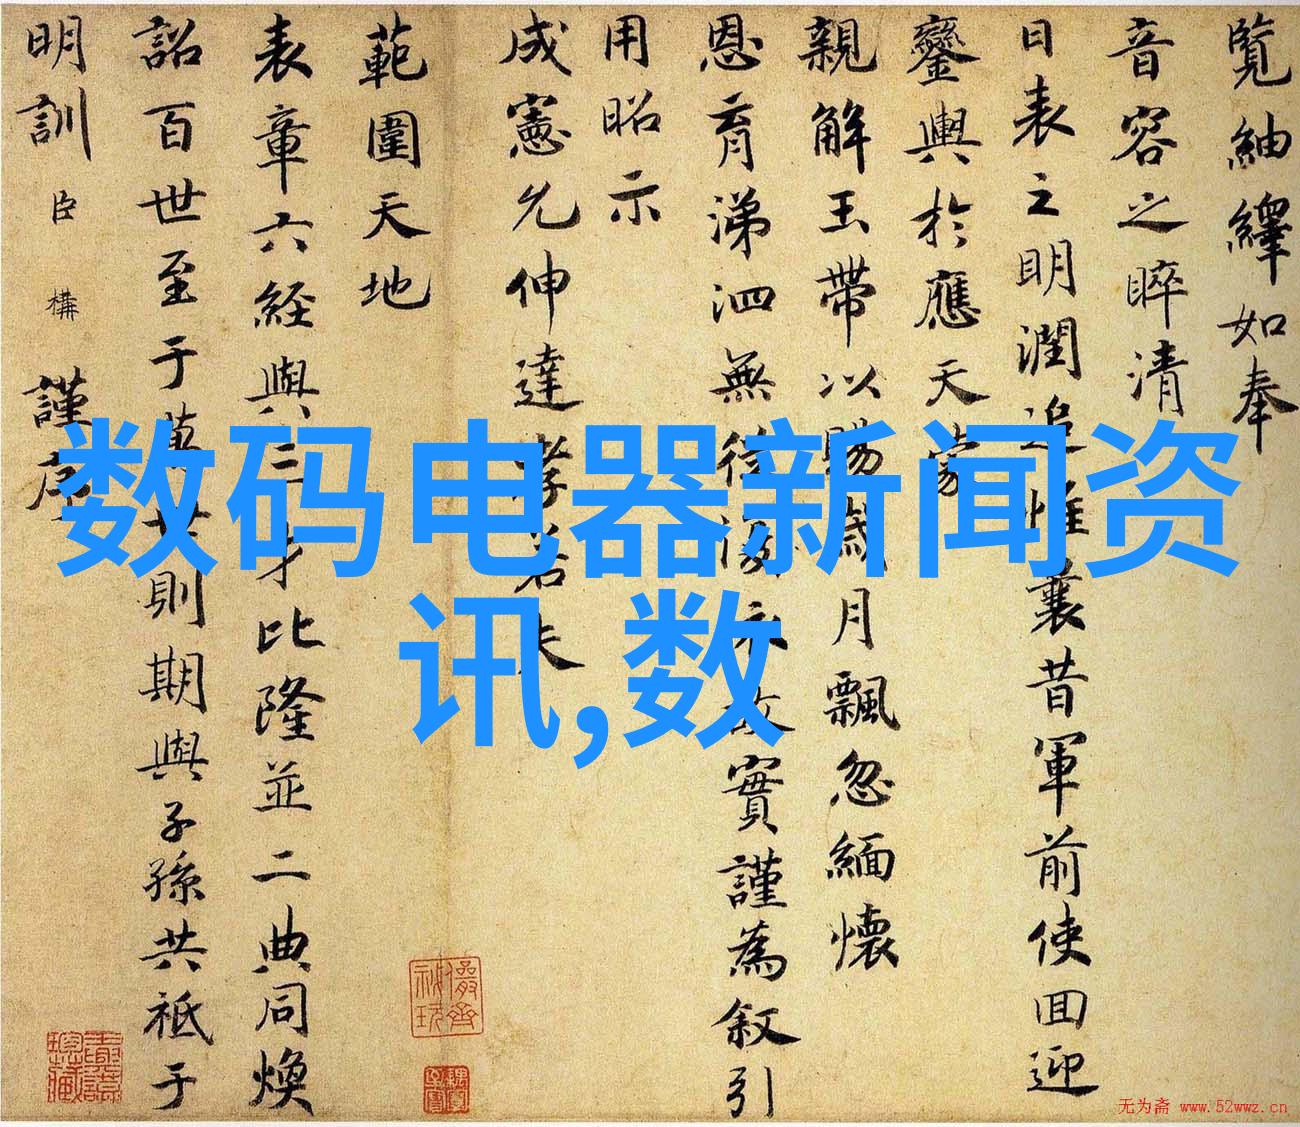 覽紬繹如奉
音容之睟清
日表之明潤追惟曩昔軍前使回迎
鑾輿於應天蒙
親解玉帶以賜歲月飄忽緬懷
恩育涕泗無從
故實謹為敘引
用昭示
成憲允伸達孝若夫
範圍天地
表章六經與三才比隆並二典同煥
詔百世至于萬世則期與子孫共祗于
明訓臣構謹序
数码电器新闻资
讯,数
无为斋 www.52wwz.cn